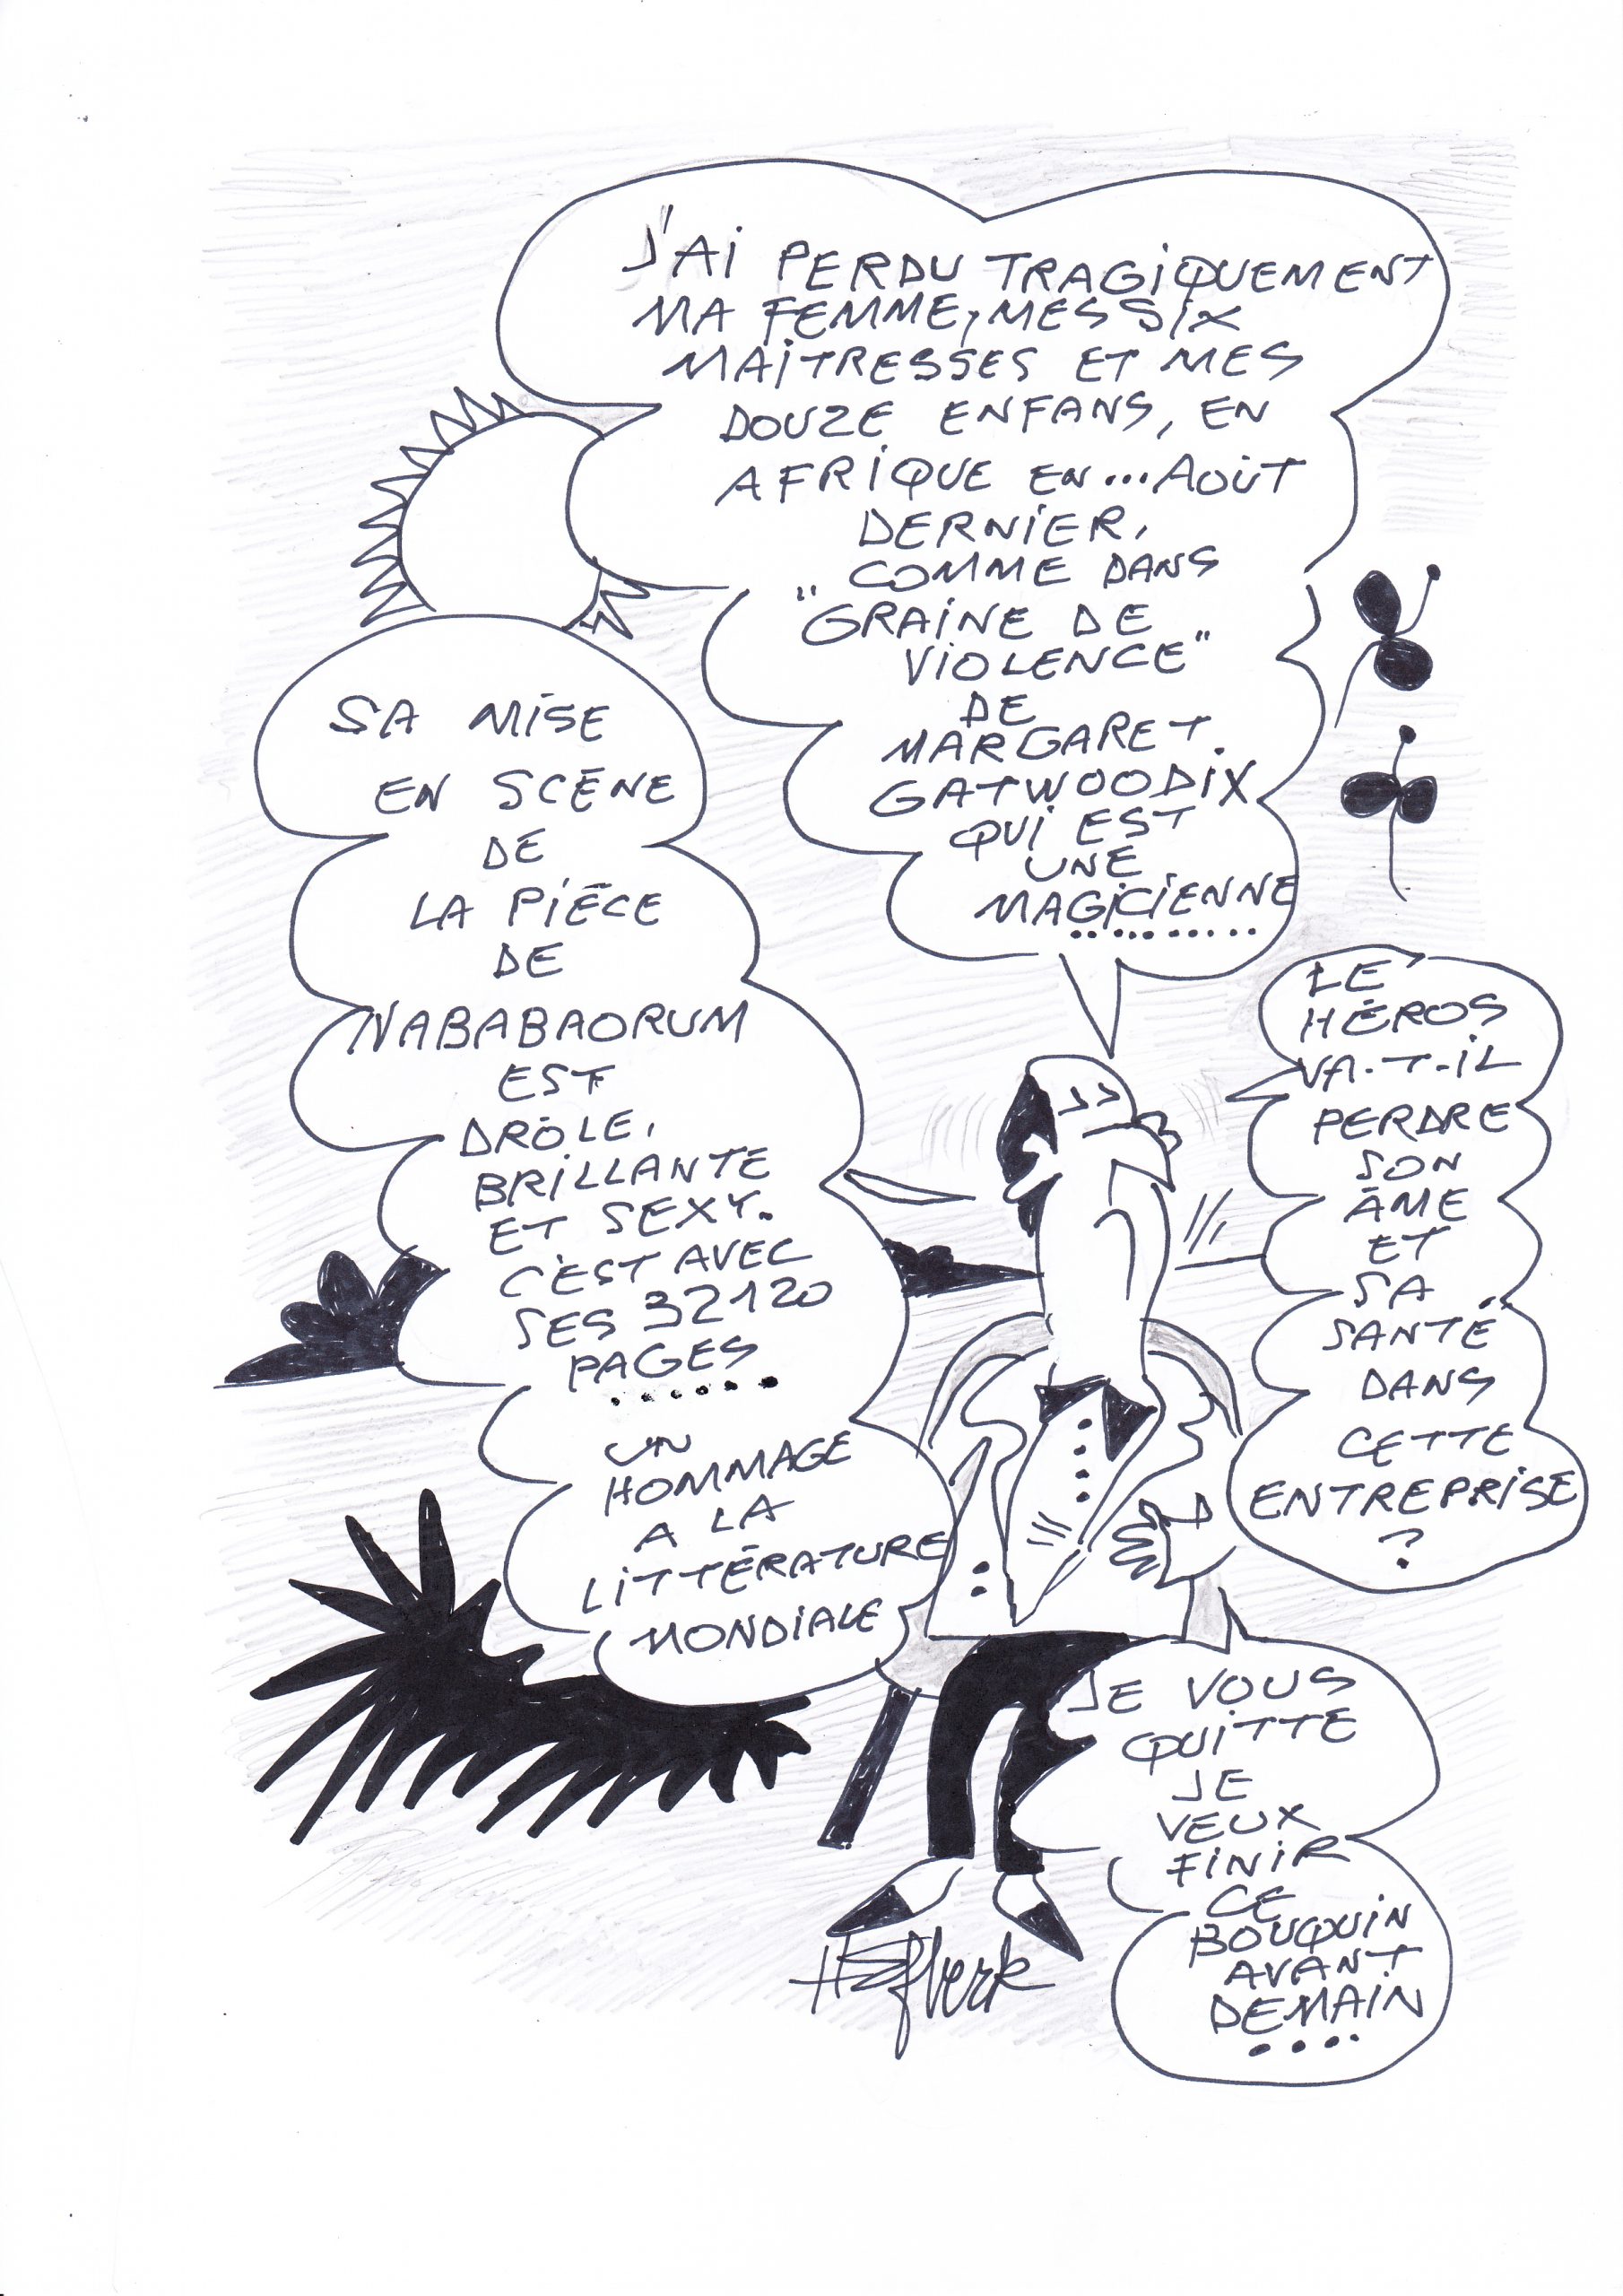 J'AI PERDU TRAGIQUEMENT
MA FEMME, MES SIX
MAITRESSES ET MES
DOUZE ENFANS, EN
AFRIQUE EN...AOÛT
DERNIER,
COMME DANS
"GRAINE DE
VIOLENCE"
DE
MARGARET.
GATWOODIX
QUI EST
UNE
MAGICIENNE
..........
SA MISE
EN SCÈNE
DE
LA PIÈCE
DE
NABABAORUM
EST
DRÔLE,
BRILLANTE
ET SEXY.
C'EST AVEC
SES 32120
PAGES
......
UN
HOMMAGE
A LA
LITTÉRATURE
MONDIALE
LE
HÉROS
VA-T-IL
PERDRE
SON
ÂME
ET
SA
SANTÉ
DANS
CETTE
ENTREPRISE
?
JE VOUS
QUITTE
JE
VEUX
FINIR
CE
BOUQUIN
AVANT
DEMAIN
....